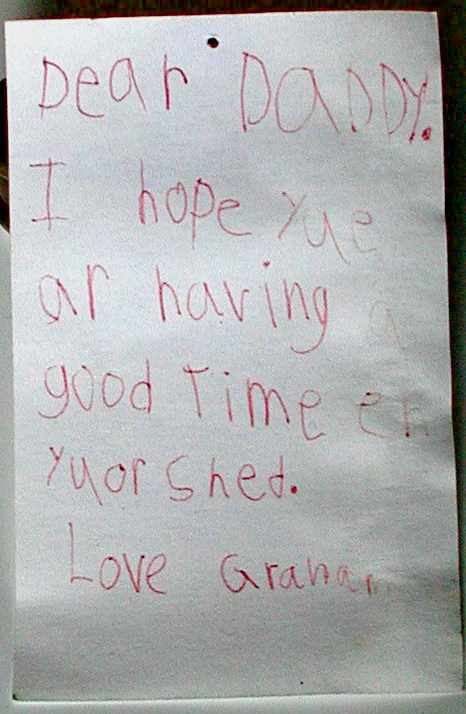 Dear DADDY.
I hope yue
ar having a
good Time en
yuor shed.
Love Graham